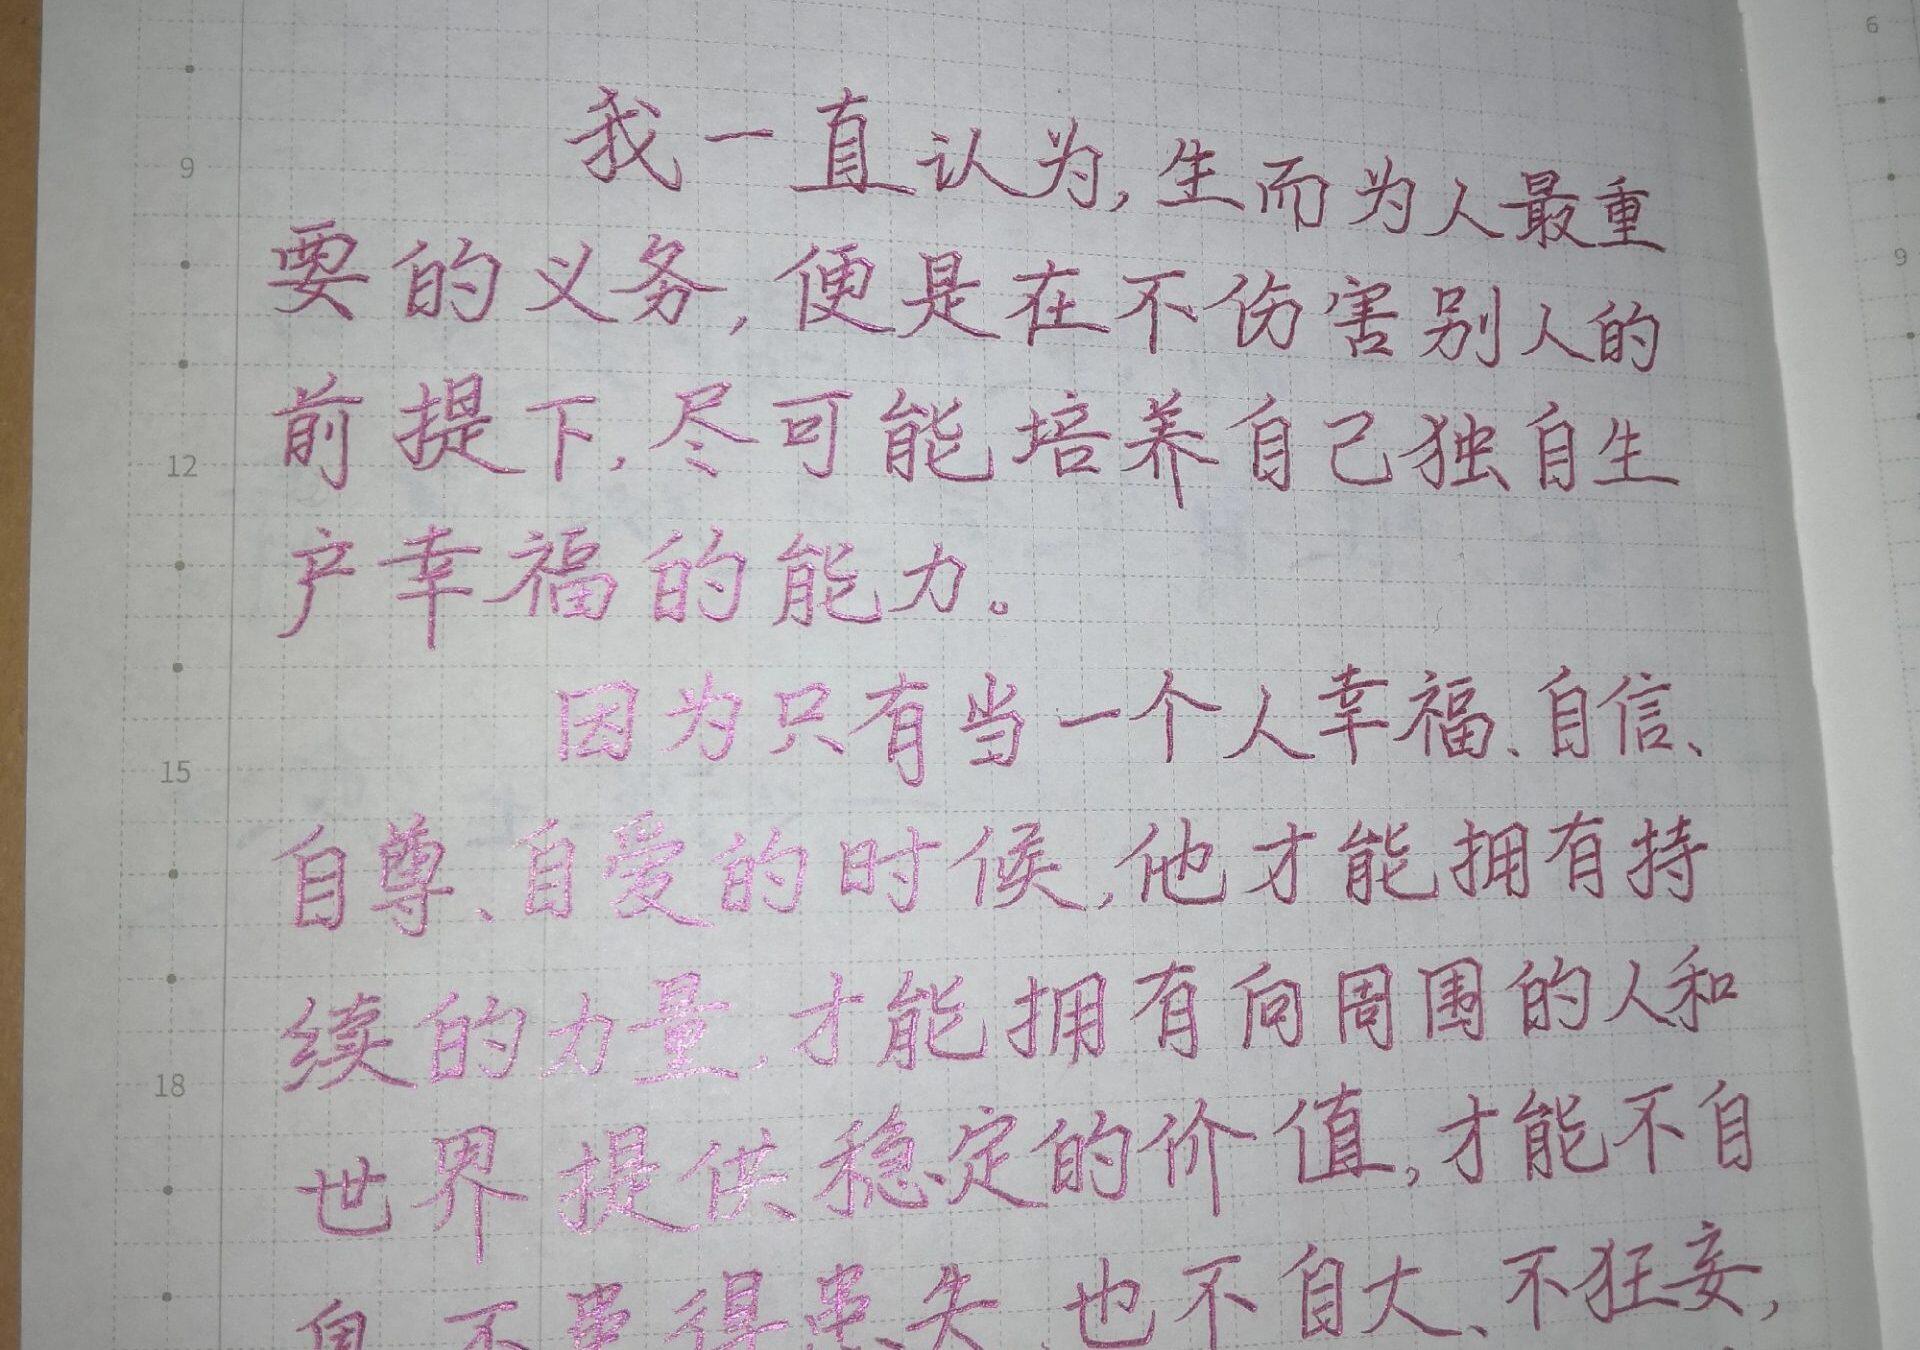 我一直认为,生而为人最重
要的义务,便是在不伤害别人的
前提下,尽可能培养自己独自生
产幸福的能力。
因为只有当一个人幸福、自信、
自尊、自爱的时候,他才能拥有持
续的力量,才能拥有向周围的人和
世界提供稳定的价值,才能不自
卑、不患得患失,也不自大、不狂妄,
9
12
15
18
6
9